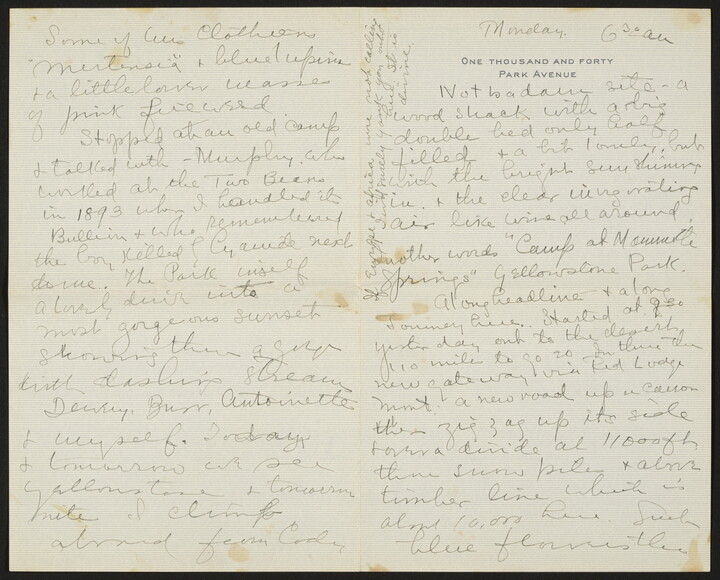 Monday. 6³⁰ am
ONE THOUSAND AND FORTY
PARK AVENUE
Not badam site - a
wood shack with a big
double bed only half
filled & a bit lonely, but
with the bright sun shining
in. & the clear invigorating
air like wine all around.
another words "Camp at Mammoth
Springs" Yellowstone Park.
A long headline & a long
journey here. Started at 9³⁰
yesterday out to the desert,
110 mile to go 20. In thru the
new gateway via Red Lodge
Mont. a new road up a canon
then zig zag up its side
& over a divide at 11000 ft
thru snow piles & above
timber line which is
about 10,000 here. Such
blue flowers thru
Some of Clothiers
"Mertensia" & blue lupine
& a little lower masses
of pink fireweed.
Stopped at an old camp
& talked with - Murphy. who
worked at the Two Bears
in 1893 when I handled its
Bullion & who remembered
the boy killed by Cyanide next
to me. The Park itself
a lovely drive into a
most gorgeous sunset
showing thru a gorge
with dashing stream
Dewey, Burr, Antoinette
& myself. Today
& tomorrow we see
Yellowstone & tomorrow
nite I climb
aboard from Cody
If Europe & Africa were not calling
divine.